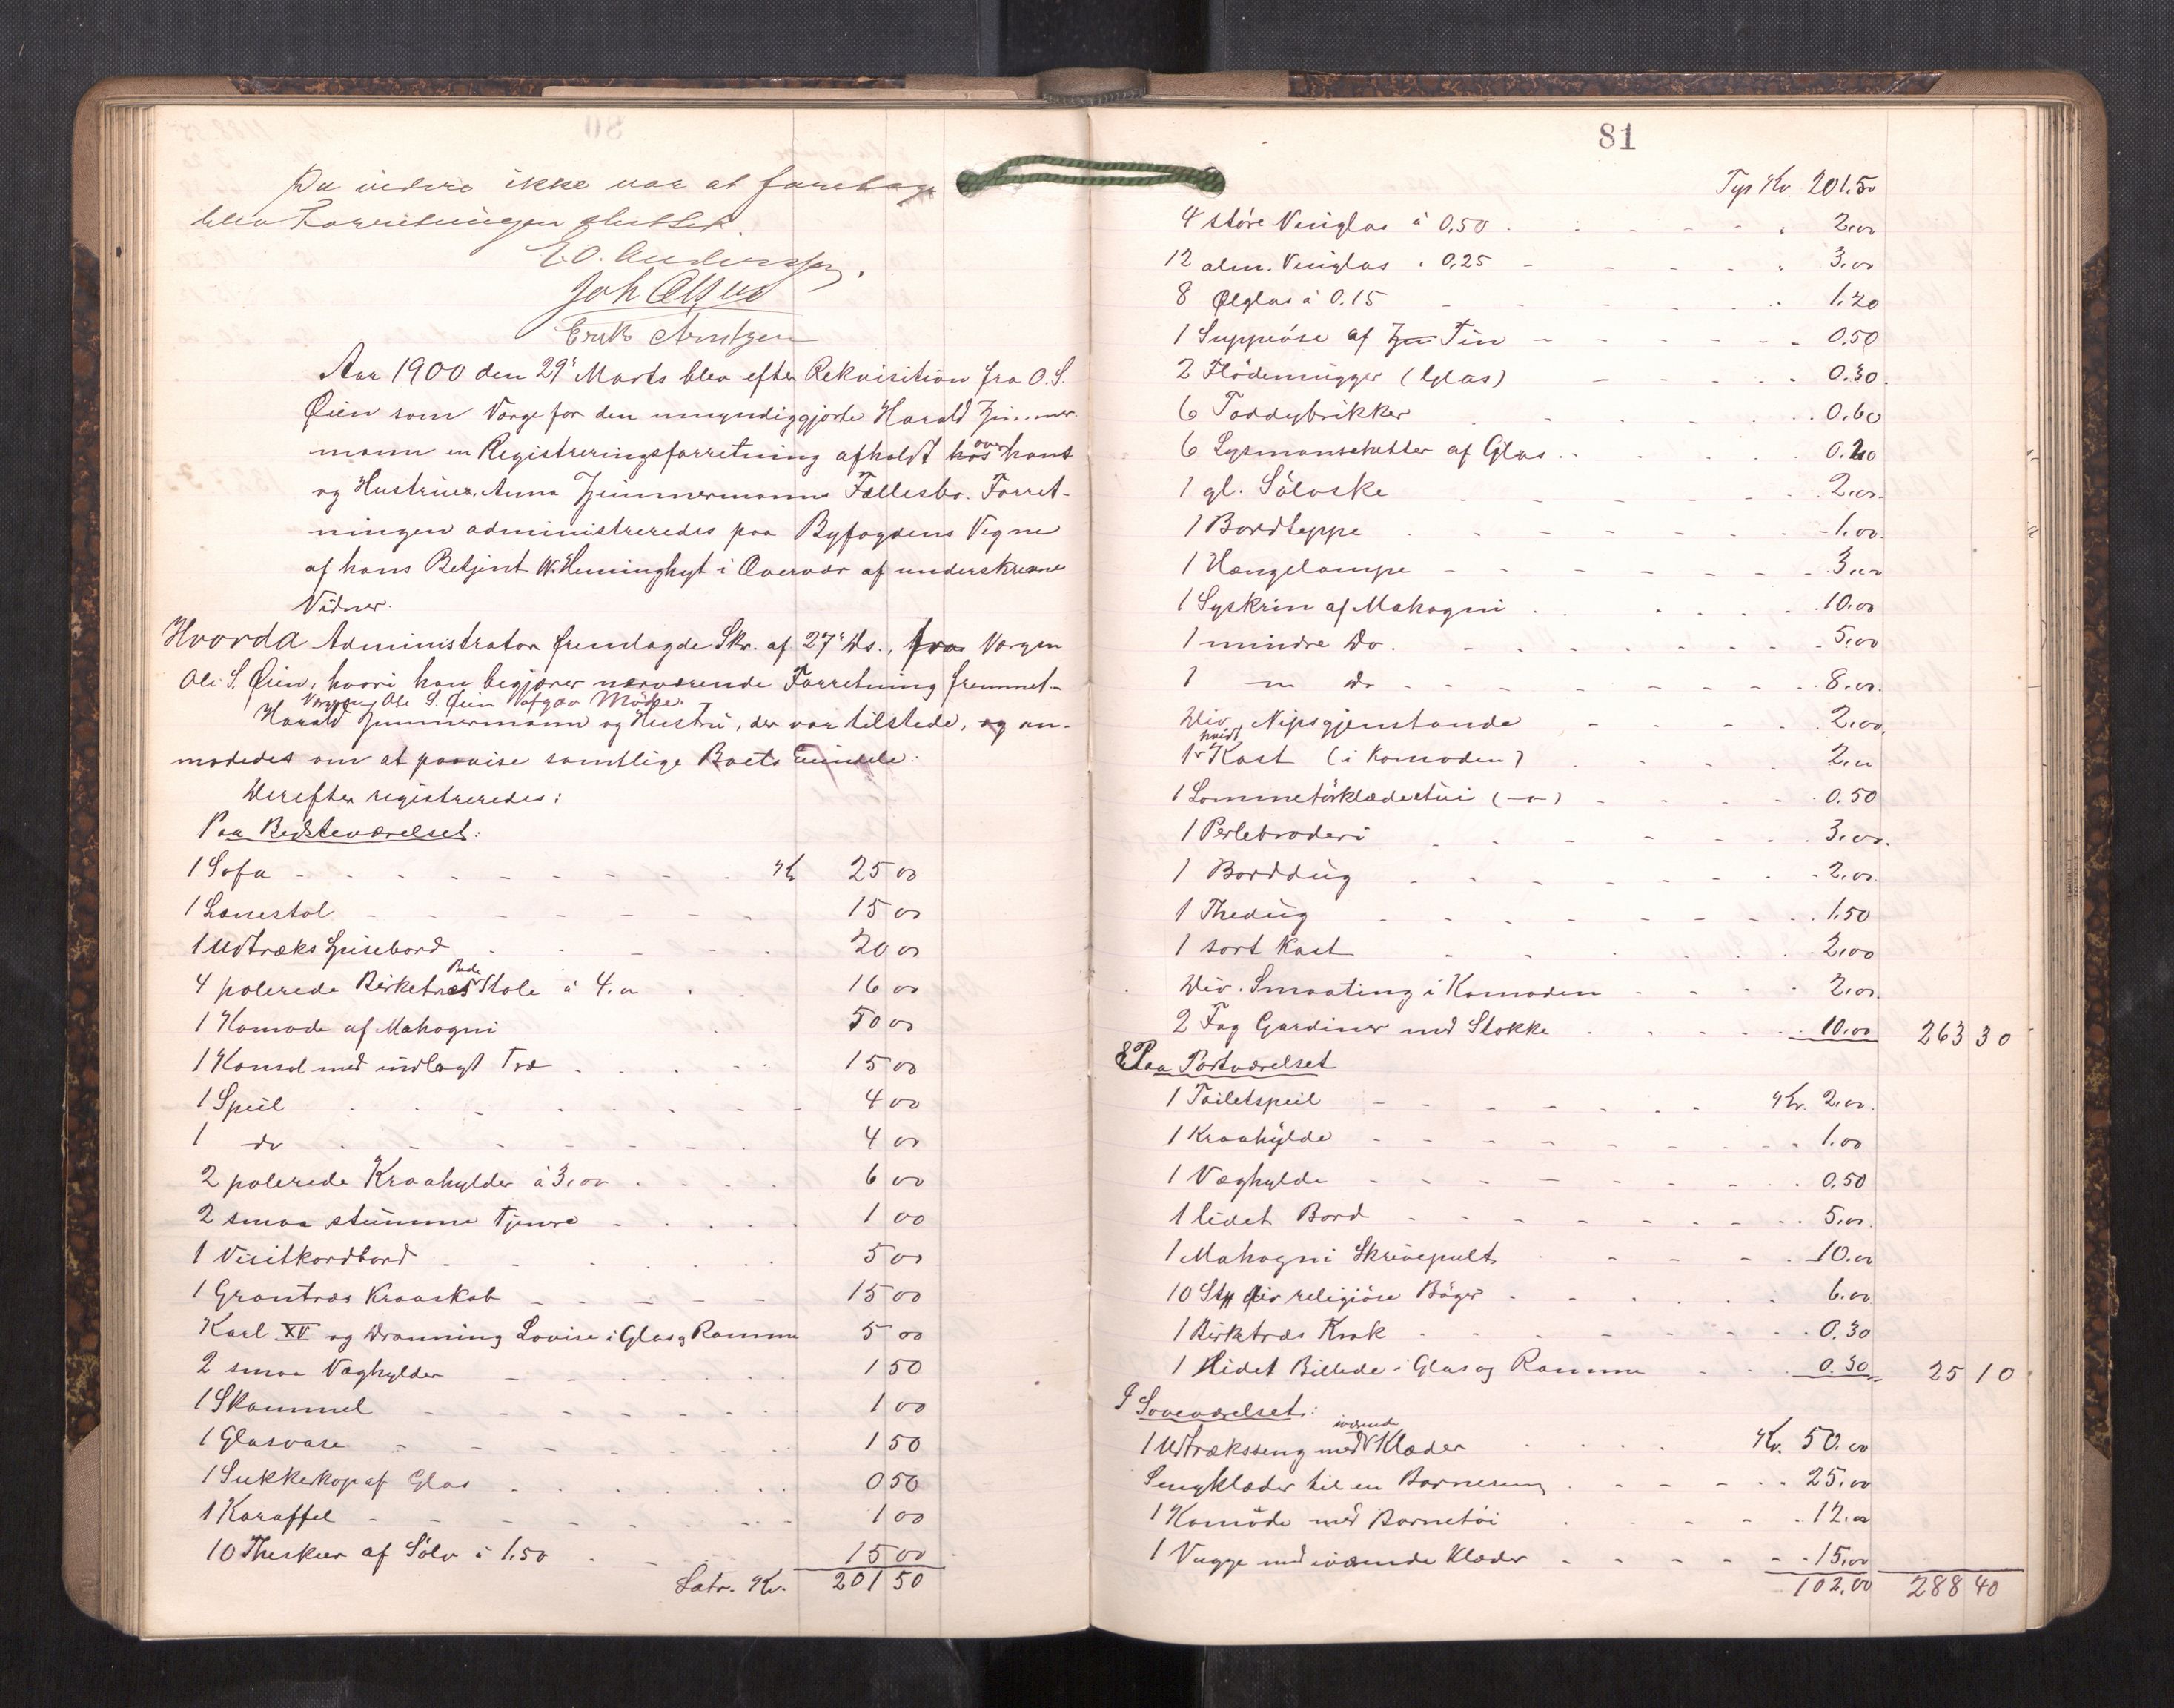 Da videre ikke var at foretage
blev Forretningen sluttet.
E.O. Anderssen.
Joh Olsen
Erik Arntzen
Aar 1900 den 29' Marts blev efter Rekvisition fra O.S.
Øien som Værge for den umyndiggjorte Harald Zimmer-
mann en Registreringsforretning afholdt hos over hans
og Hustrues, Anna Zimmermanns Fællesbo. Forret-
ningen administreredes paa Byfogdens Vegne
af hans Betjent W. Heminghyt i Overvær af underskrevne
Vidner.
Hvorda Administrator fremlagde Skr. af 27' ds., fra Værgen
Ole S. Øien, hvori han begjærer nærværende Forretning fremmet.
Værgen Ole S. Øien afgav Møde.
Harald Zimmermann og Hustru, der var tilstede, og an-
modedes om at paavise samtlige Boets Eiendele.
Derefter registreredes:
Paa Bedsteværelset:
1 Sofa Kr 25 00
1 Lænestol 15 00
1 Udtræks Spisebord 20 00
4 polerede Birketræs Stole á 4.00 16 00
1 Komode af Mahogni 50 00
1 Konsol med indlagt Træ 15 00
1 Speil 4 00
1 do 4 00
2 polerede Kraahylder á 3,00 6 00
2 smaa stumme Tjenere 1 00
1 Visitkordbord 5 00
1 Grantræs Kraaskab 15 00
Karl XV og Dronning Lovise i Glas og Ramme 5 00
2 smaa Væghylder 1 50
1 Skammel 1 00
1 Glasvase 1 50
1 Sukkerkop af Glas 0 50
1 Karaffel 1 00
10 Theskeer af Sølv á 1.50 15 00
Latr. Kr. 201 50
81
Trp Kr. 201.50
4 støre Vinglas á 0,50 2,00
12 alm. Vinglas " 0,25 3,00
8 Ølglas á 0.15 1.20
1 Suppeøse af Tin 0,50
2 Flødemugger (Glas) 0.30
6 Toddybrikker 0.60
6 Lysmanschetter af Glas 0.20
1 gl. Sølvske 2,00
1 Bordteppe 1.00
1 Hængelampe 3,00
1 Syskrin af Mahogni 10.00
1 mindre Do. 5,00
1 — Do 8,00
Div. Nipsgjenstande 2,00
1 hvidt Kast (i Komoden) 2,00
1 Lommetørklædeetui (—) 0.50
1 Perlebroderi 3,00
1 Borddug 2,00
1 Thedug 1.50
1 sort Kast 2,00
Div. Smaating i Komoden 2,00
2 Fag Gardiner med Stokke 10,00 263 30
Paa Portværelset
1 Toiletspeil Kr. 2,00
1 Kraahylde 1,00
1 Væghylde 0.50
1 lidet Bord 5,00
1 Mahogni Skrivepult 10.00
10 Stk div religiøse Bøger 6.00
1 Birketræs Krak 0.30
1 lidet Billede i Glas og Ramme 0.30 25 10
I Soveværelset:
1 Udtræksseng med iværende Klæder Kr. 50.00
Sengklæder til en Barneseng 25,00
1 Komøde med Barnetøi 12.00
1 Vugge med iværende Klæder 15,00
102,00 288 40